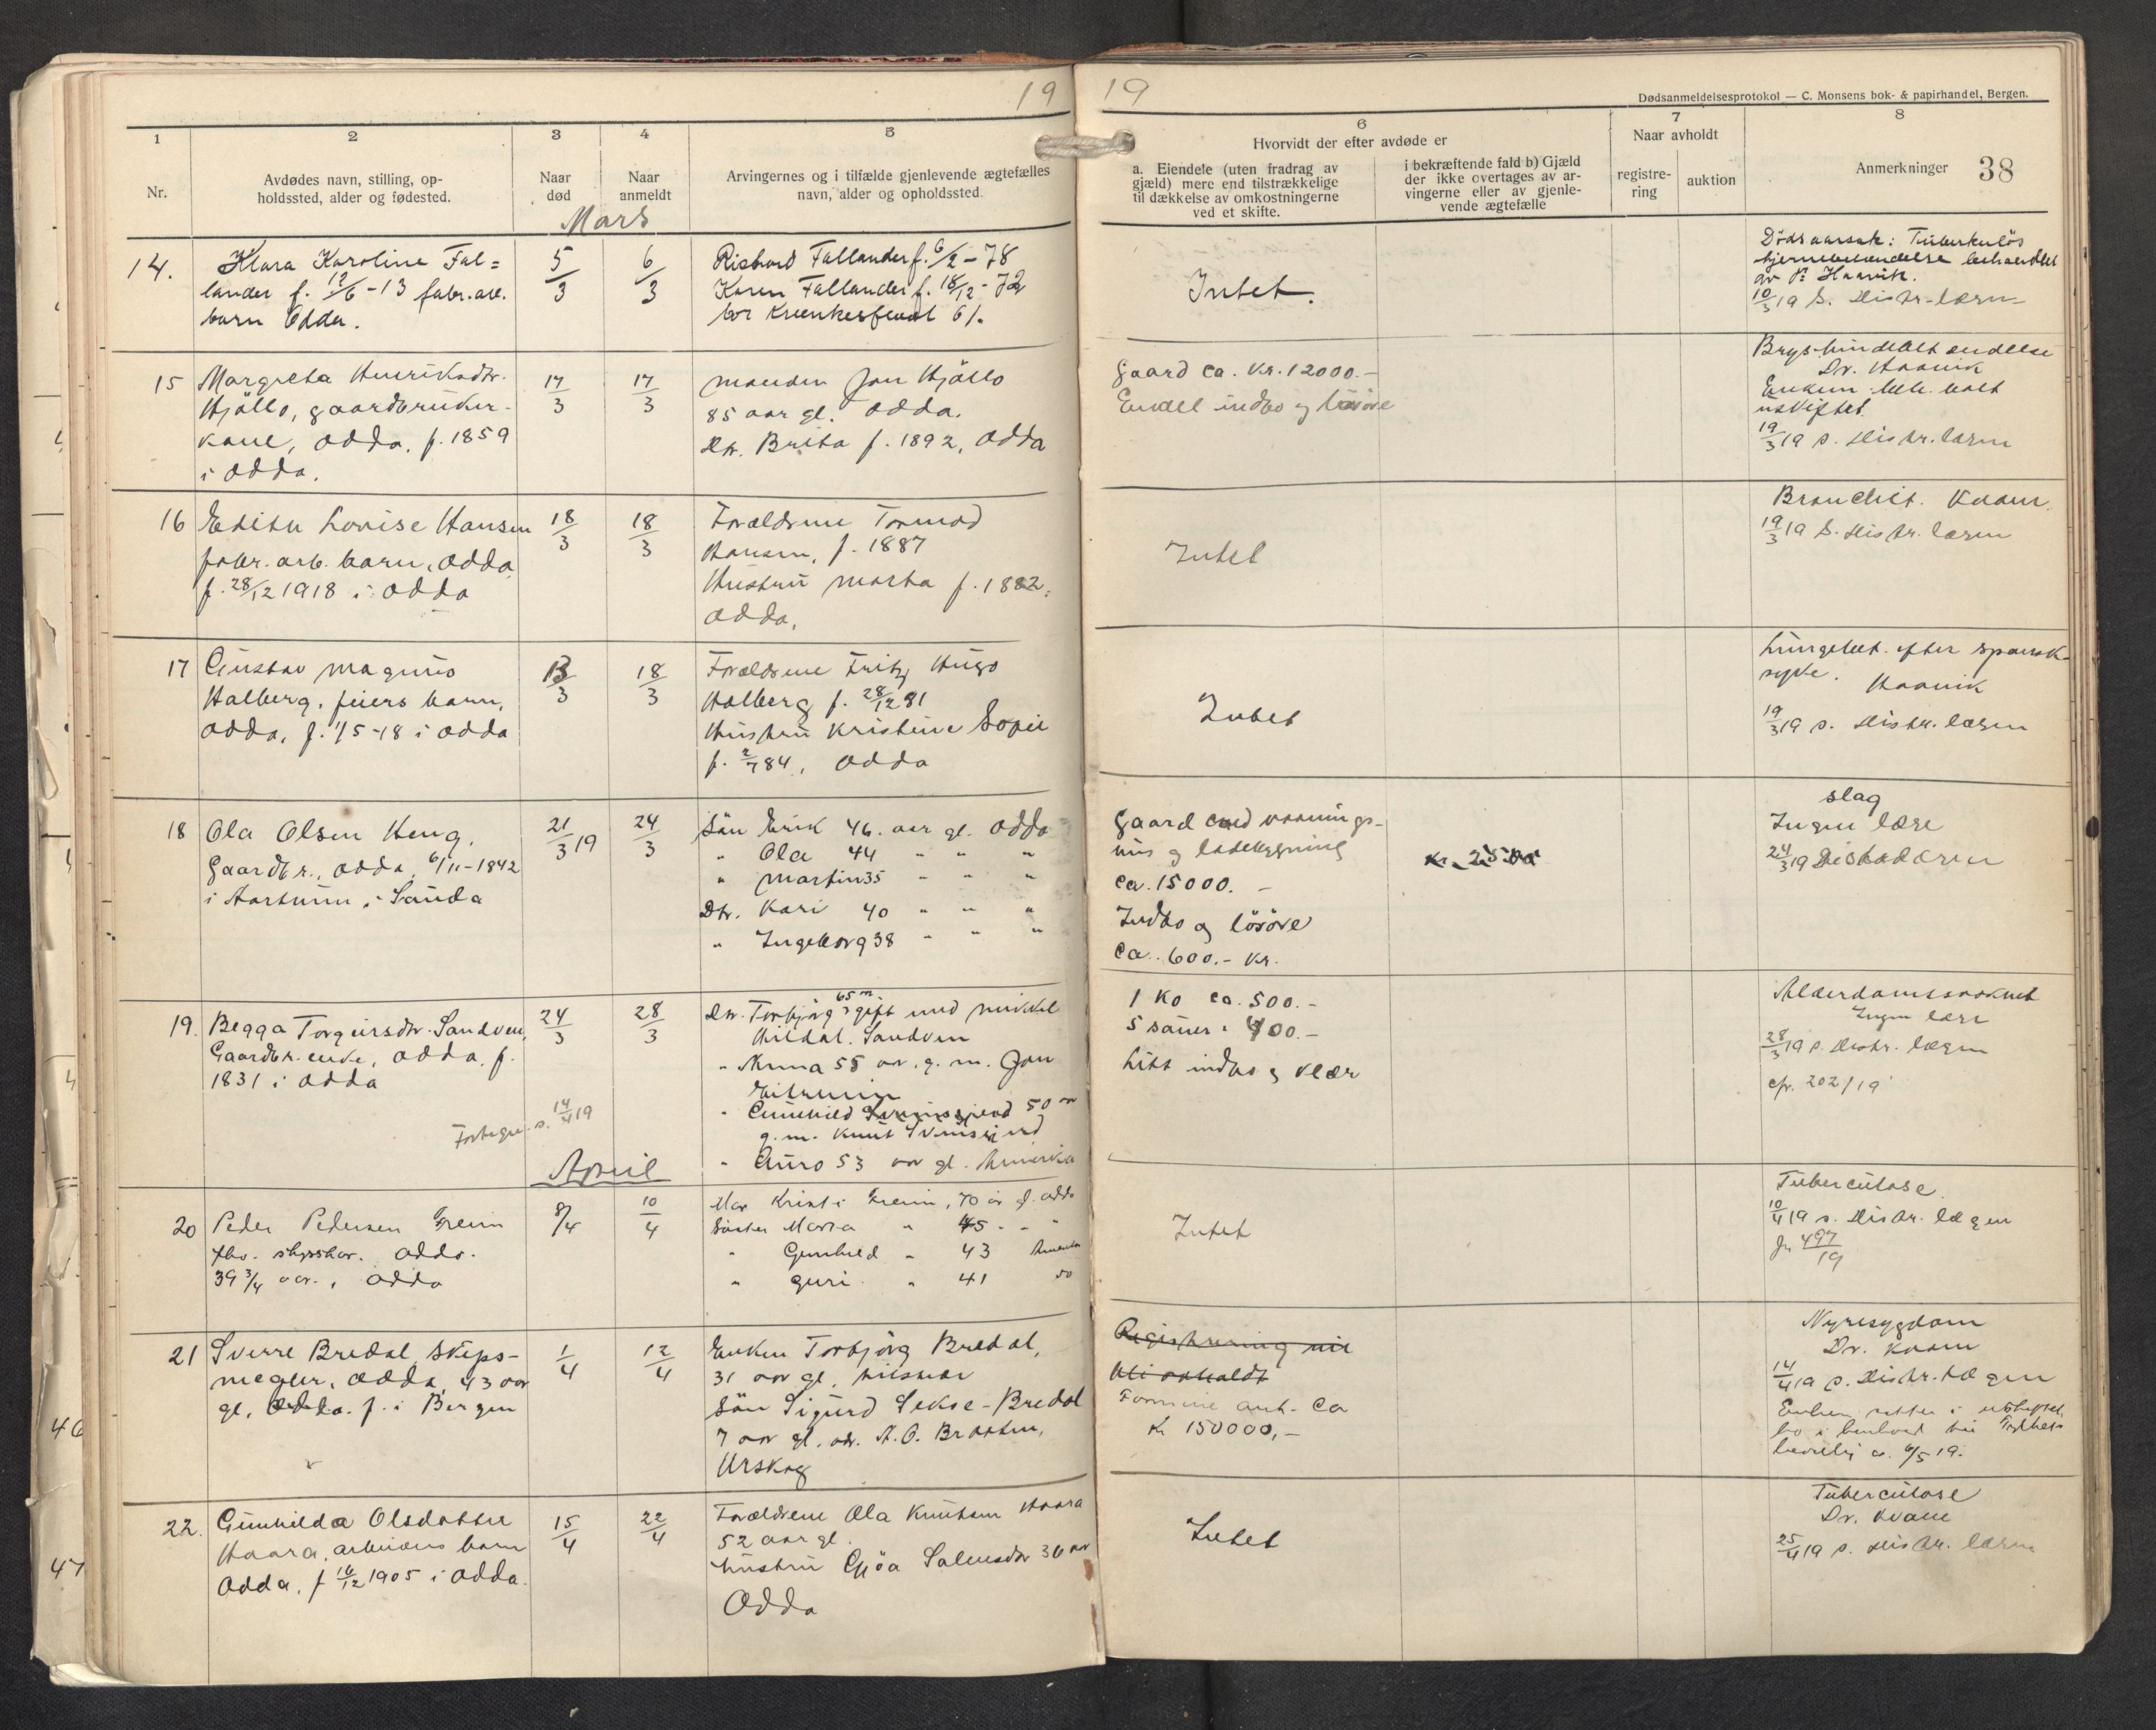 19
19
Dødsanmeldelsesprotokol — C. Monsens bok- & papirhandel, Bergen.
1
Nr.
2
Avdødes navn, stilling, op-
holdssted, alder og fødested.
3
Naar
død
4
Naar
anmeldt
5
Arvingernes og i tilfælde gjenlevende ægtefælles
navn, alder og opholdssted.
6
Hvorvidt der efter avdøde er
a. Eiendele (uten fradrag av
gjæld) mere end tilstrækkelige
til dækkelse av omkostningerne
ved et skifte.
i bekræftende fald b) Gjæld
der ikke overtages av ar-
vingerne eller av gjenle-
vende ægtefælle
7
Naar avholdt
registre-
ring
auktion
8
Anmerkninger
38
Mars
14.
Klara Karoline Fal=
lander f. 12/6-13 fabr.arb.
barn Odda.
5/3
6/3
Rishord Fallander f. 6/2-78
Karen Fallander f. 18/12-72
bor 61.
Intet.
Dødsaarsak: Tuberkuløs
hjernebetændelse behandlet
av Dr Haavik.
10/3 19 S. Distr-lægen
15
Margreta Henriksdtr.
Hjöllo, gaardbruker-
kone, Odda, f. 1859
i Odda.
17/3
17/3
Manden Jon Hjöllo
85 aar gl. Odda.
Dtr. Brita f. 1892, Odda
Gaard ca. Kr. 12000.-
Endel indbo og lösöre
Brysthindebetændelse
Dr. Haavik
uskiftet.
19/3 19 s. Distr. lægen
16
Edith Lovise Hansen
fabr. arb. barn, Odda,
f. 28/12 1918 i Odda
18/3
18/3
Forældrene Tormod
Hansen, f. 1887
Hustru Marta f. 1882,
Odda.
Intet
Bronchit. Kvam.
19/3 19 S. Distr. lægen
17
Gustav Magnus
Halberg, feiers barn,
Odda, f. 1/5-18 i Odda
13/3
18/3
Forældrene Fritz Hugo
Halberg f. 28/12 81
Hustru Kristine Sofie
f. 2/7 84, Odda
Intet
Lungebet. efter spansk-
syke. Haavik
19/3 19 s. Distr. lægen
18
Ola Olsen Heng,
Gaardbr., Odda, 6/11-1842
i Aarthun i Sauda
21/3 19
24/3
Sön Erik 46. aar gl. Odda
" Ola 44 " " "
" Martin 35 " " "
Dtr. Kari 40 " " "
" Ingeborg 38 " " "
Gaard med vaanings-
hus og ladebygning
ca. 15000.-
Indbo og lösöre
ca. 600.- Kr.
Kr. 2500
slag
Ingen læge
24/3 19 Distr.lægen
19.
Begga Torgeirsdtr. Sandven,
Gaardbr. enke, Odda, f.
1831 i Odda
24/3
28/3
Dtr. Torbjörg 65 gift med Mikkel
Hildal. Sandven
" Anna 55 aar. g. m. Jon
Eitrheim
" Gunhild 50 aar
g. m. Knut
" Guro 53 aar gl. Amerika
s. 14/4 19
1 Ko ca. 500.-
5 sauer 400.-
Litt indbo og klær
Alderdomssvakhet
Ingen læge
28/3 19 s. Distr. lægen
cfr. 202/19
April
20
Peder Pedersen Freim
fhv. skysskar. Odda.
39 3/4 aar. , Odda
8/4
10/4
Mor Kristi Freim, 70 år gl. Odda
Söster Marta " 45 - - "
" Gunhild " 43 Amerika
" Guri " 41 do
Intet
Tuberculose.
10/4 19 s. Distr. lægen
Jr 497/19
21
Sverre Bredal, Skips-
megler, Odda, 43 aar
gl. Odda. f. i Bergen
1/4
12/4
Enken Torbjörg Bredal,
31 aar gl.
Sön Sigurd Sekse-Bredal
7 aar gl. adr. A. O. Braaten,
Urskog
Registrering vil
bli avholdt
Formue anh. ca
Kr 150000,-
Nyresygdom
Dr. Kvam
14/4 19 s. Distr. lægen
Enken sitter i uskiftet
bo i henhold til
bevilling a. 6/5 19.
22.
Gunhilda Olsdatter
Haara, arbeiders barn
Odda, f 16/12 1905 i Odda.
15/4
22/4
Forældrene Ola Knutsen Haara
52 aar gl.
hustru Gjöa Salmsdtr 36 aar
Odda
Intet
Tuberculose
Dr. Kvam
25/4 19 s. Distr. lægen
46
47